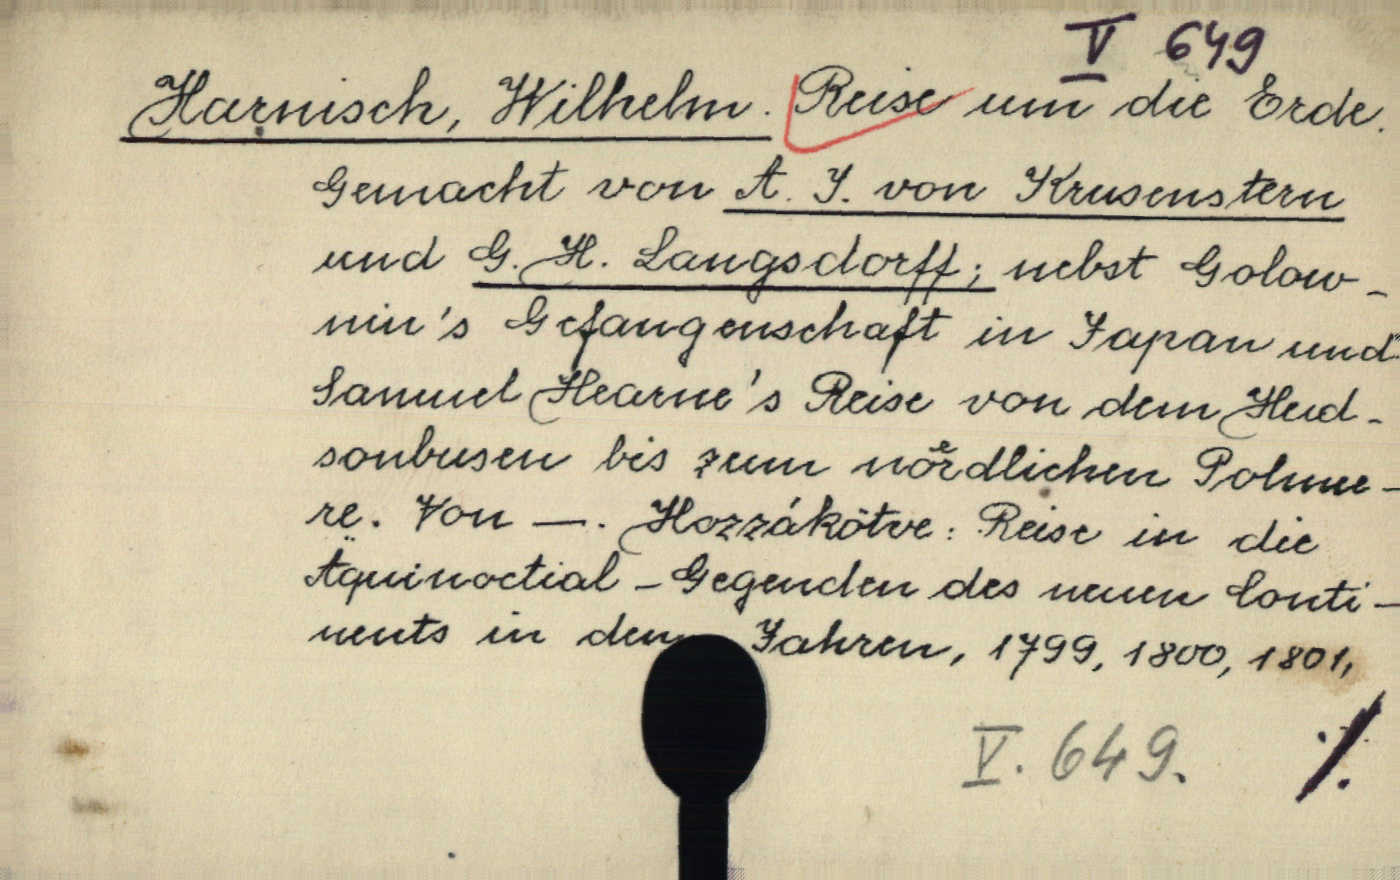 V 649
Harnisch, Wilhelm. Reise um die Erde.
Gemacht von A. J. von Krusenstern
und G. H. Langsdorff; nebst Golow-
nin's Gefangenschaft in Japan und
Samuel Hearne's Reise von dem Hud-
sonbusen bis zum nördlichen Polmee-
re. Von —. Hozzákötve: Reise in die
Äquinoctial-Gegenden des neuen Conti-
nents in den Jahren, 1799, 1800, 1801,
V. 649. ./.